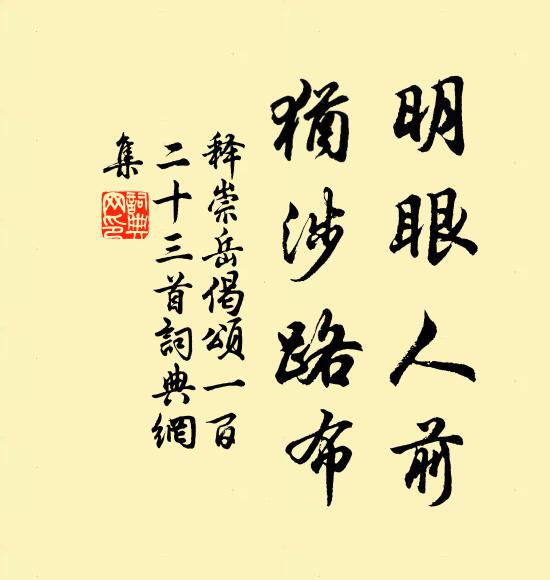 明眼人前
猶涉路布
释崇岳偈頌一百
二十三首詞典網
集
詞典网印